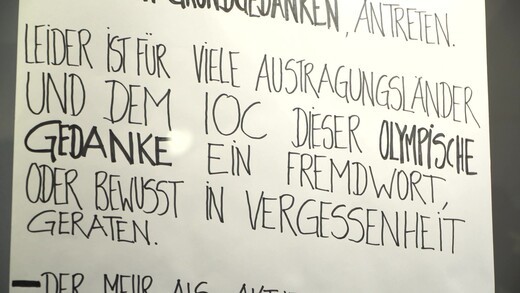 GRUNDGEDANKEN, ANTRETEN.
LEIDER IST FÜR VIELE AUSTRAGUNGSLÄNDER
UND DEM IOC DIESER OLYMPISCHE
GEDANKE EIN FREMDWORT,
ODER BEWUSST IN VERGESSENHEIT
GERATEN.
– DER MEHR ALS